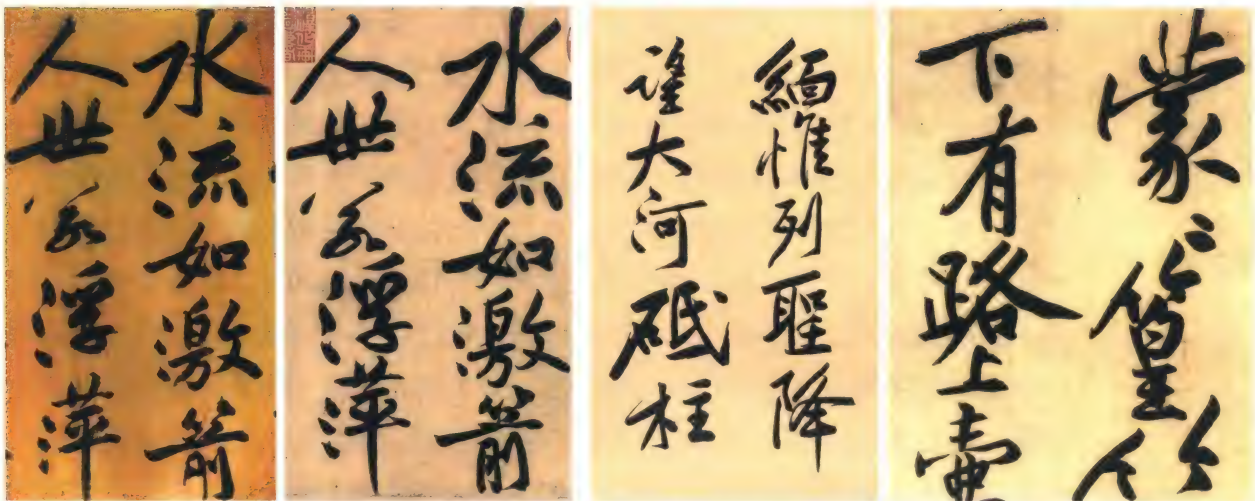 水流如激箭
人世若浮萍
水流如激箭
人世若浮萍
緬惟列聖降
望大河砥柱
蒙〻篁竹
下有路上壺